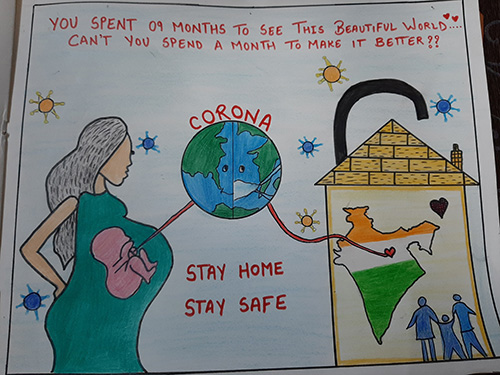 YOU SPENT 09 MONTHS TO SEE THIS BEAUTIFUL WORLD....
CAN'T YOU SPEND A MONTH TO MAKE IT BETTER??
CORONA
STAY HOME
STAY SAFE